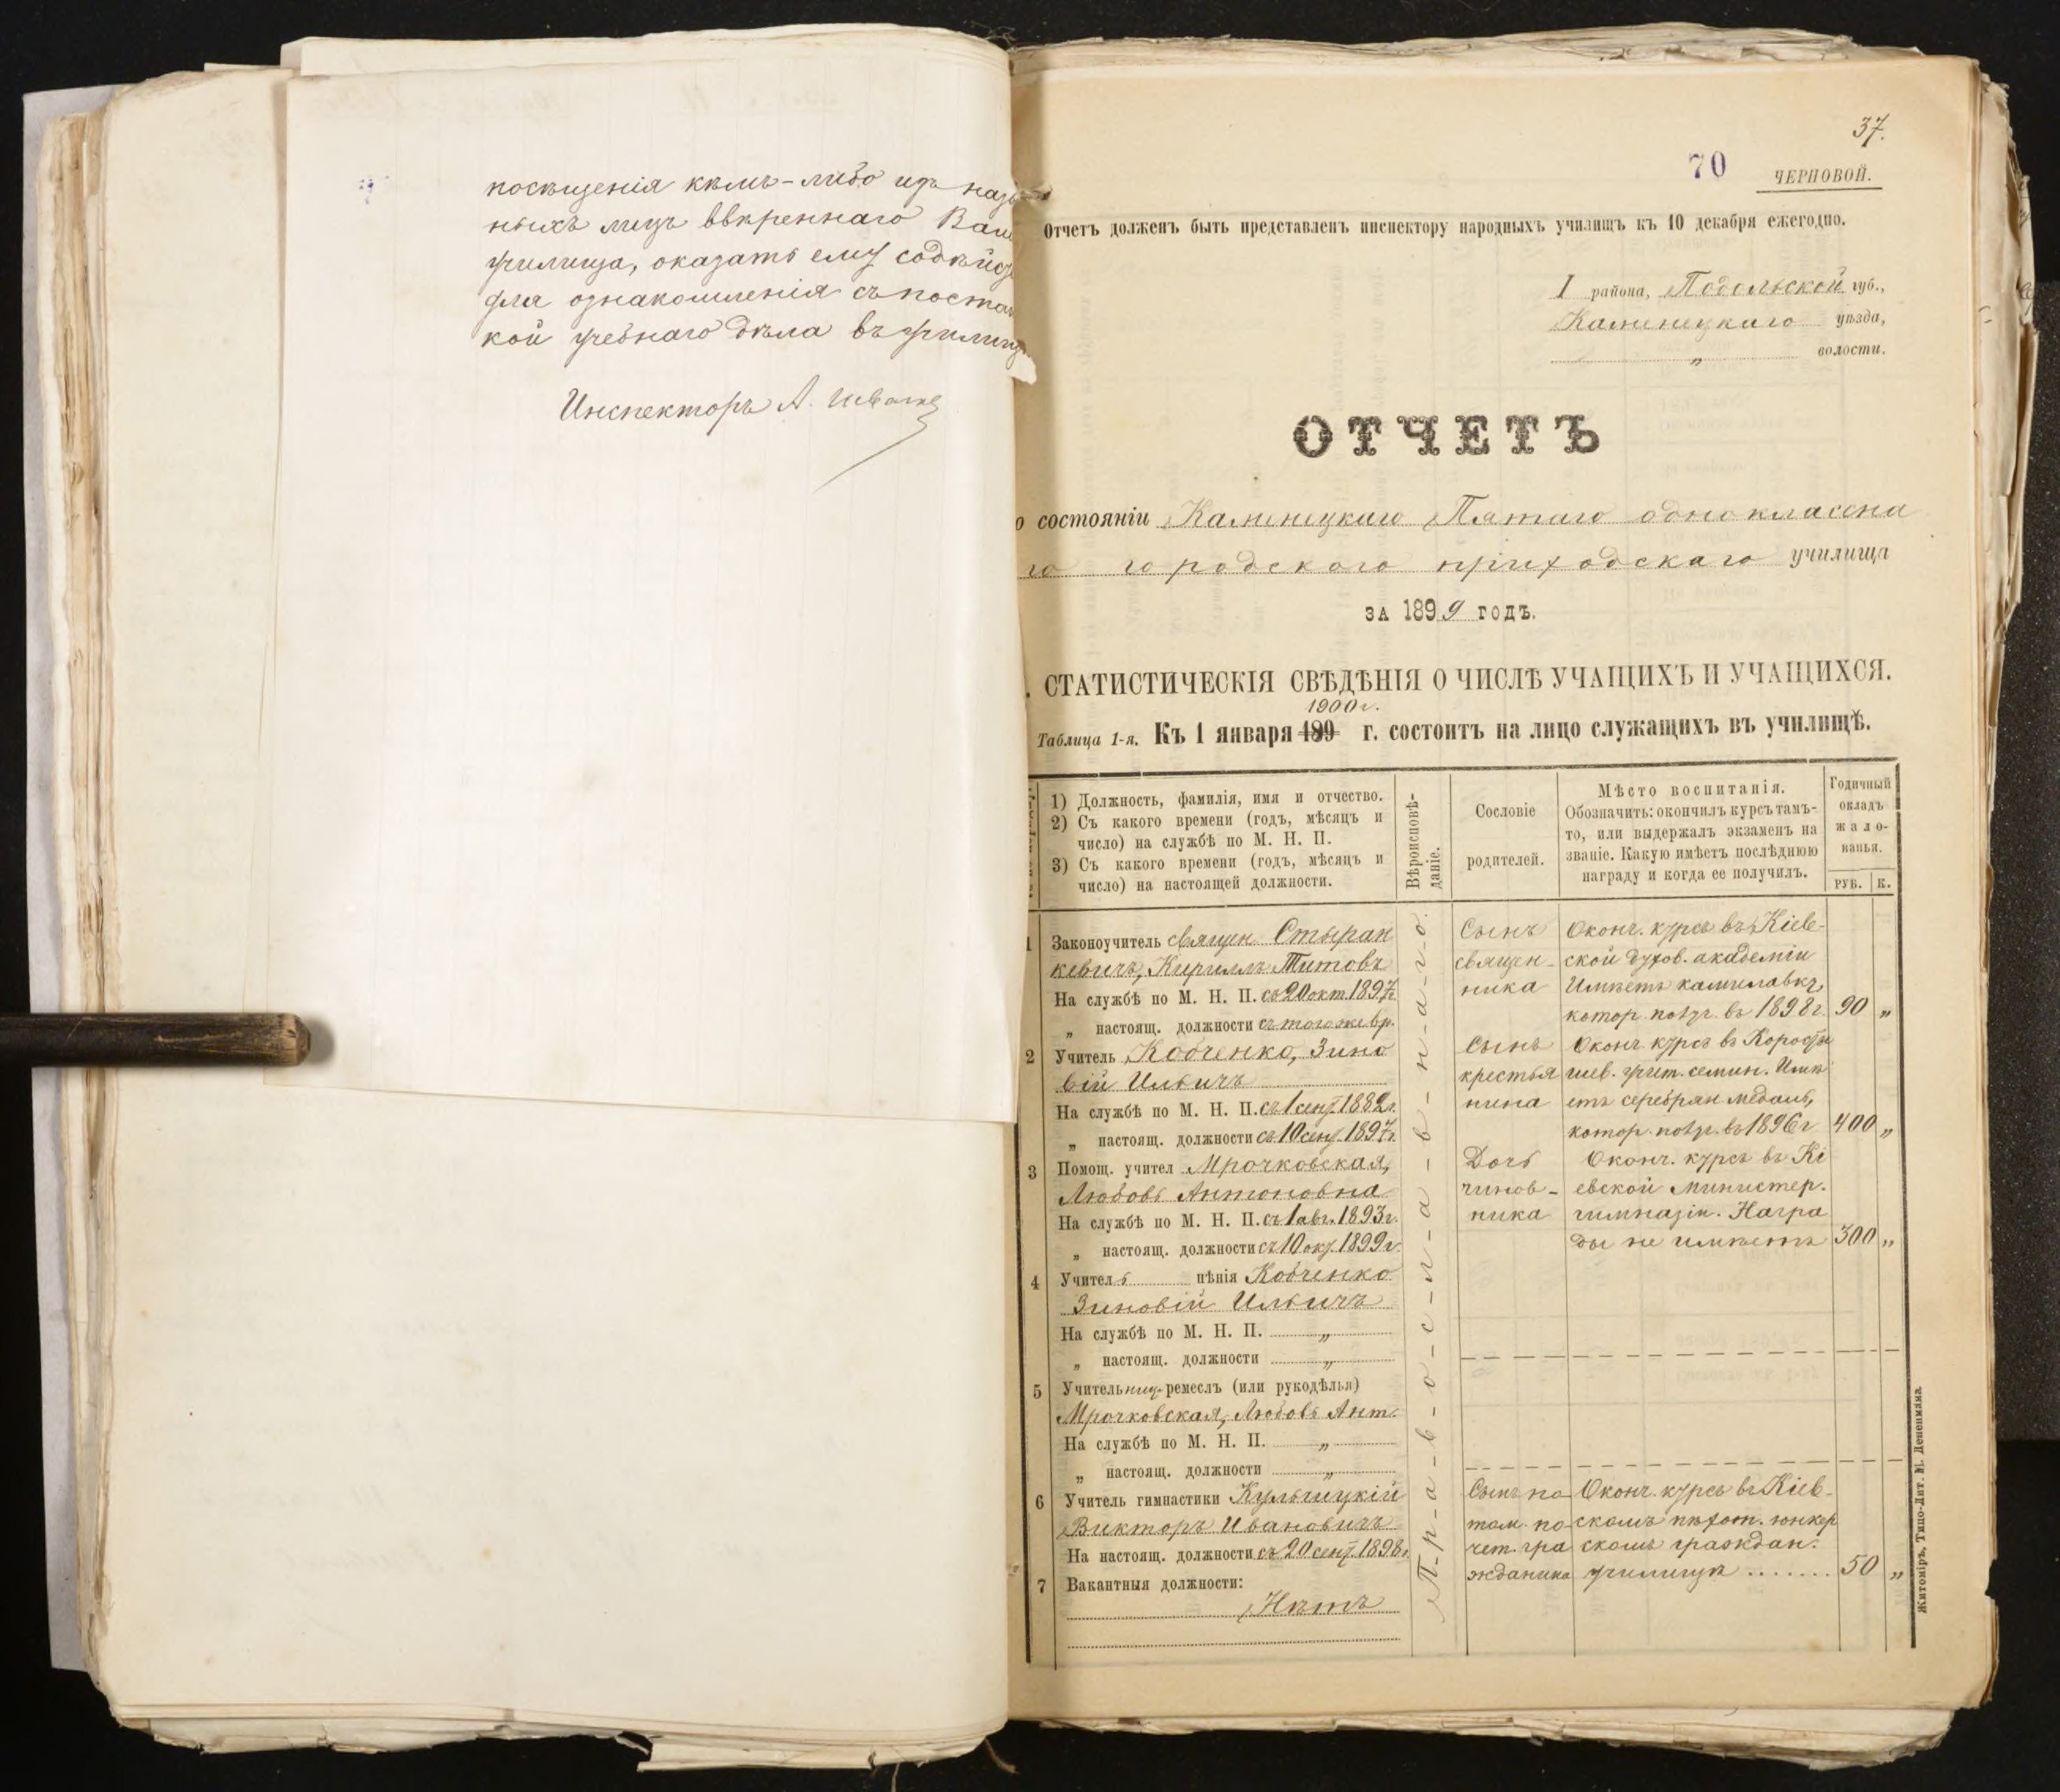 посѣщенія кѣмъ-либо изъ
ныхъ лицъ ввѣреннаго
училища, оказать ему
для ознакомленія съ
кой учебнаго дѣла въ
Инспекторъ А.
37.
70
ЧЕРНОВОЙ.
Отчетъ долженъ быть представленъ инспектору народныхъ училищъ къ 10 декабря ежегодно.
I района, Подольской губ.,
Каменецкаго уѣзда,
„ волости.
ОТЧЕТЪ
о состояніи Каменецкаго Пятаго одноклассна
го городского приходскаго училища
ЗА 1899 ГОДЪ.
. СТАТИСТИЧЕСКІЯ СВѢДѢНІЯ О ЧИСЛѢ УЧАЩИХЪ И УЧАЩИХСЯ.
1900 г.
Таблица 1-я. Къ 1 января 189 г. состоитъ на лицо служащихъ въ училищѣ.
1) Должность, фамилія, имя и отчество.
2) Съ какого времени (годъ, мѣсяцъ и
число) на службѣ по М. Н. П.
3) Съ какого времени (годъ, мѣсяцъ и
число) на настоящей должности.
Вѣроисповѣ-
даніе.
Сословіе
родителей.
Мѣсто воспитанія.
Обозначить: окончилъ курсъ тамъ-
то, или выдержалъ экзаменъ на
званіе. Какую имѣетъ послѣднюю
награду и когда ее получилъ.
Годичный
окладъ
жало-
ванья.
РУБ. К.
П-р-а-в-о-с-л-а-в-н-а-г-о.
1 Законоучитель священ. Стыран
кевичъ, Кириллъ Титовъ
На службѣ по М. Н. П. съ 20 окт. 1897 г.
„ настоящ. должности съ того же вр.
Сынъ
священ-
ника
Оконч. курсъ въ Кіев-
ской духов. академіи
Имѣетъ камилавку,
котор. получ. въ 1898 г. 90 „
2 Учитель Кобченко, Зино
вій Ильичъ
На службѣ по М. Н. П. съ 1 сент. 1882 г.
„ настоящ. должности съ 10 сент. 1897 г.
Сынъ
крестья
нина
Оконч. курсъ въ Коросты
шев. учит. семин. Имѣ
етъ серебрян. медаль,
котор. получ. въ 1896 г 400 „
3 Помощ. учител Мрочковская,
Любовь Антоновна
На службѣ по М. Н. П. съ 1 авг. 1893 г.
„ настоящ. должности съ 10 окт. 1899 г.
Дочь
чинов-
ника
Оконч. курсъ въ Кі
евской министер.
гимназіи. Награ
ды не имѣетъ 300 „
4 Учитель пѣнія Кобченко
Зиновій Ильичъ
На службѣ по М. Н. П. „
„ настоящ. должности „
5 Учительница ремеслъ (или рукодѣлья)
Мрочковская, Любовь Ант.
На службѣ по М. Н. П. „
„ настоящ. должности „
6 Учитель гимнастики Кульчицкій
Викторъ Ивановичъ
На настоящ. должности съ 20 сент. 1898 г.
Сынъ по
том. по-
чет. гра
жданина
Оконч. курсъ въ Кіев-
скомъ пѣхот. юнкер
скомъ граждан.
училищѣ ....... 50 „
7 Вакантныя должности:
Нѣтъ
Житоміръ, Типо-Лит. М. Дененмана.